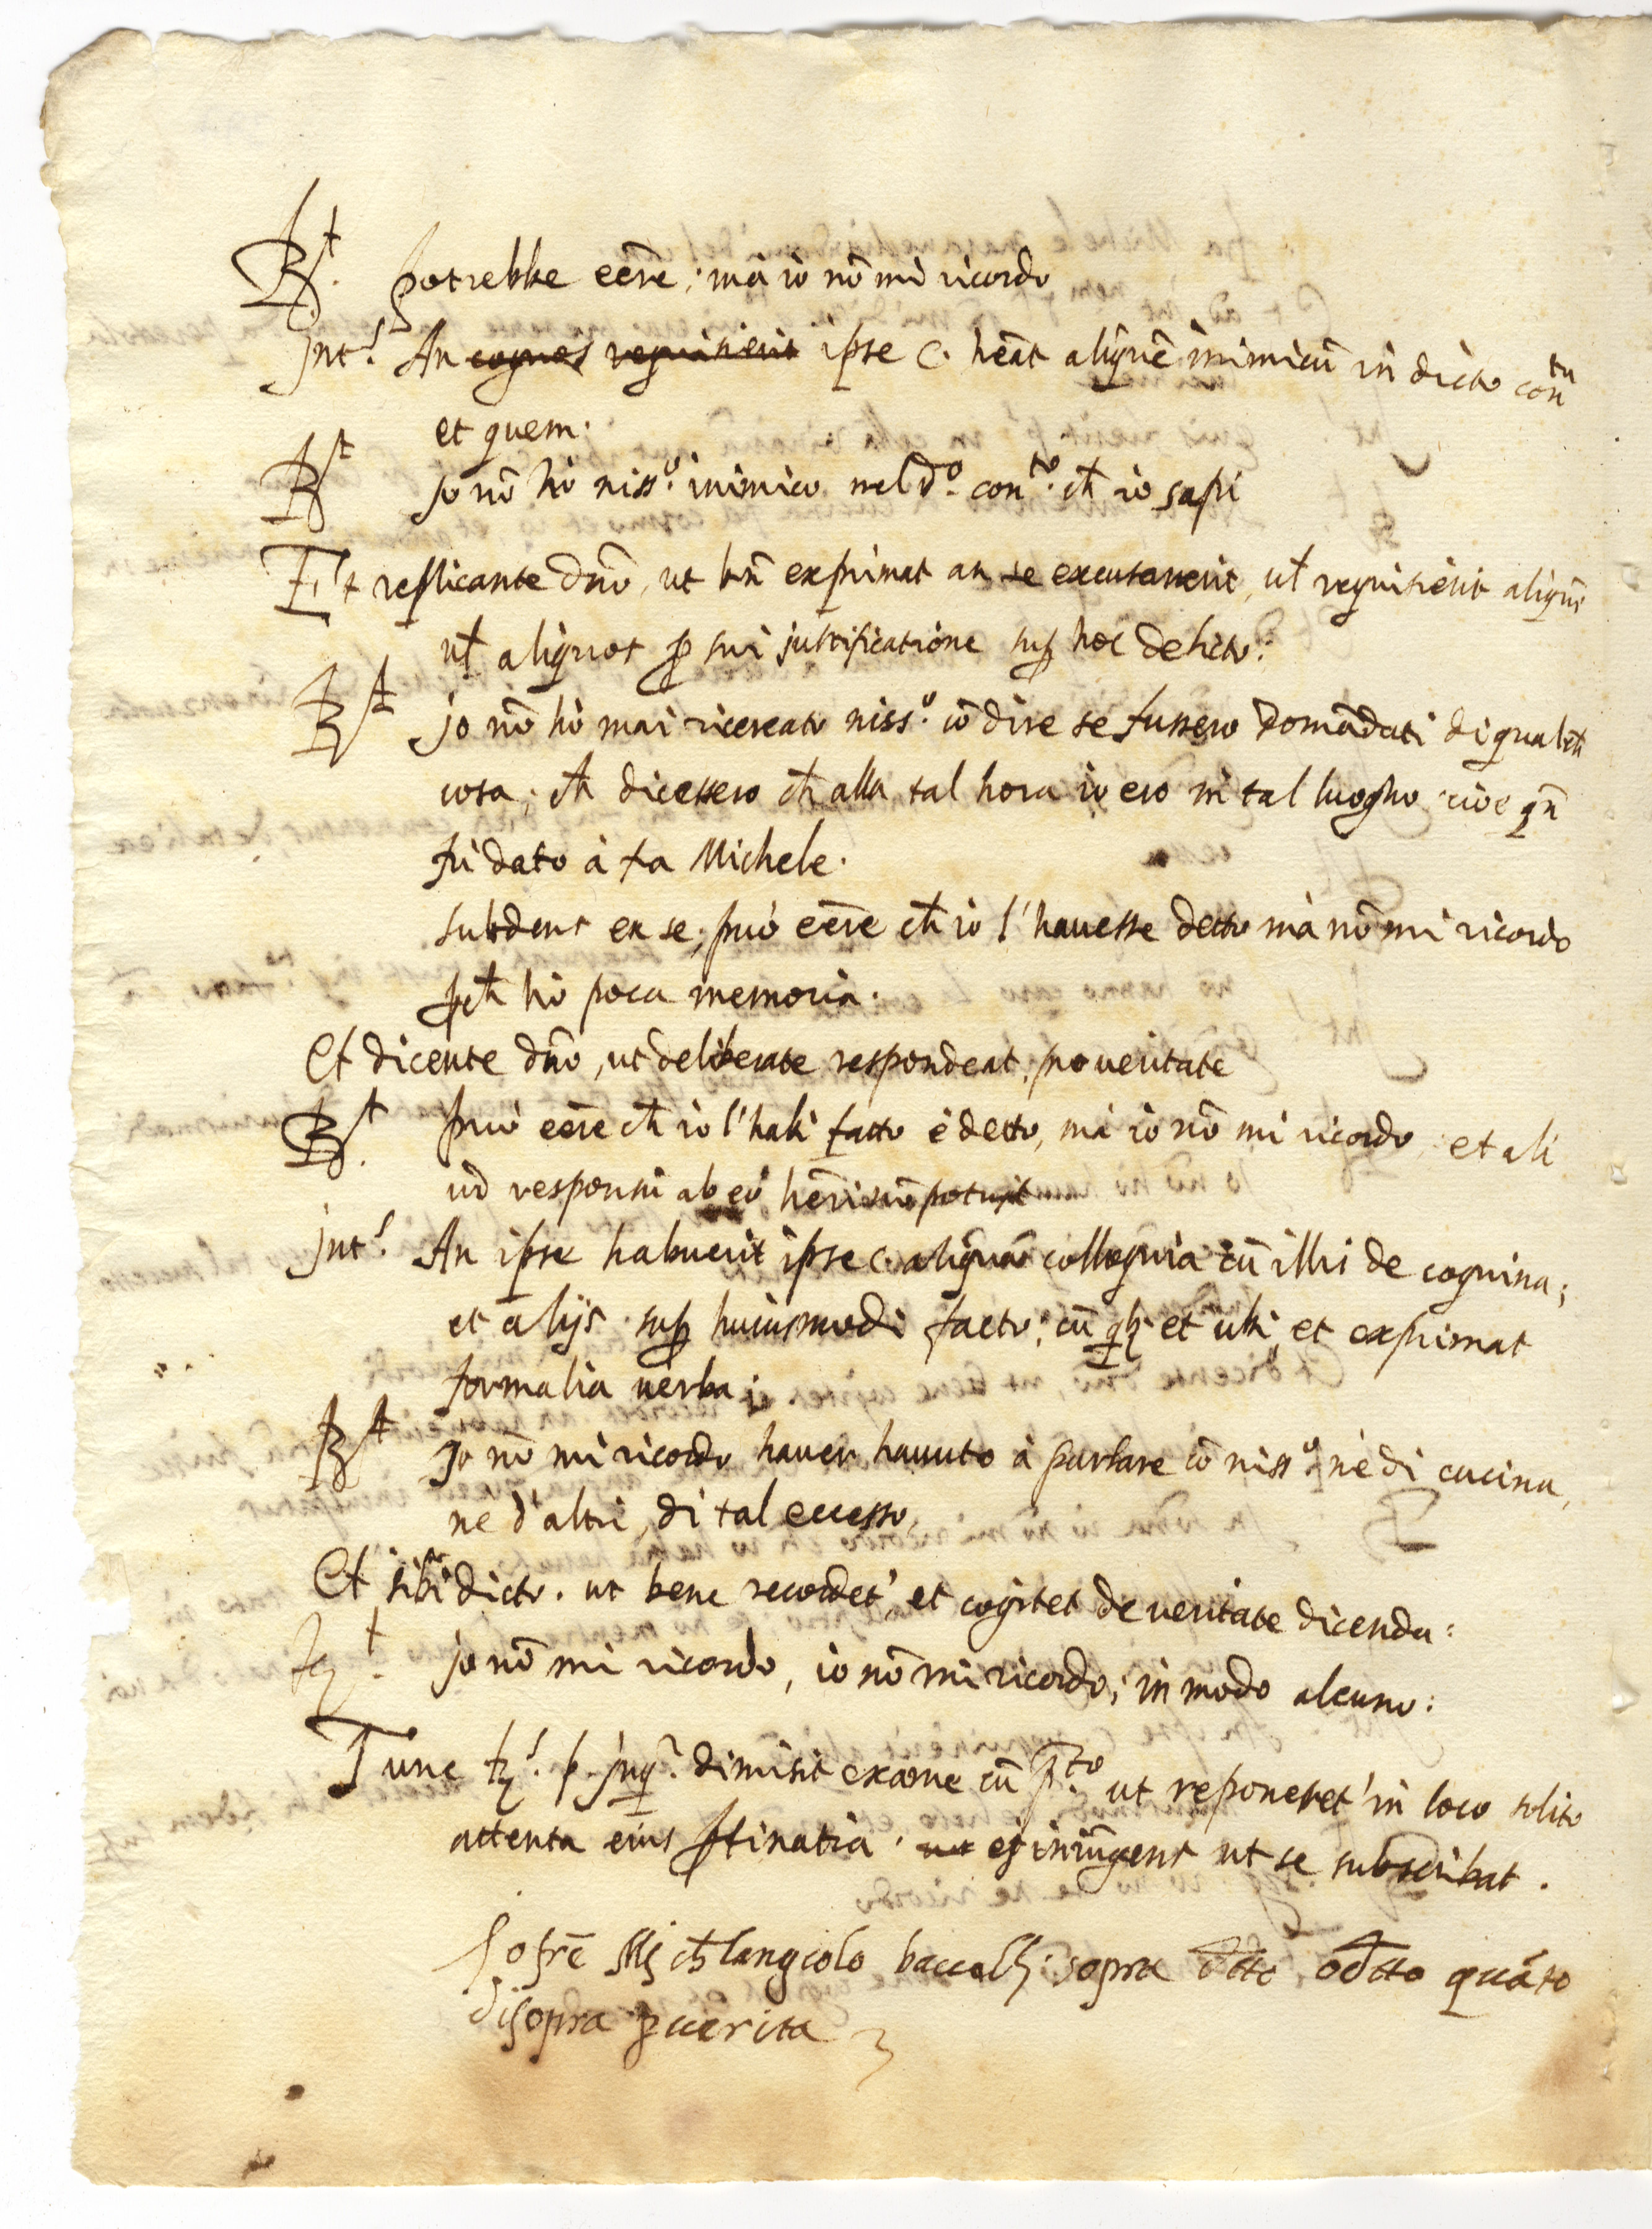 Rt. potrebbe eēre; mà io nō mi ricordo
Jnt.s An cognos requisierit ipse C. heāt aliquē inimicū in dicto contu
et quem.
Rt Jo nō hò niss.o inimico nel d.o con.to ch̄ io sapi
Et replicante dn̄o, ut bn̄ exprimat an se excusaverit, ul̄ requisierit aliquē
ul̄ aliquos ꝑ sui justificatione suꝑ hoc delicto:
Rt jo nō hò mai ricercato niss.o cō dire se fussero domādati di qualch̄
cosa; ch̄ dicessero ch̄ alla tal hora io ero in tal luogho cioe qn̄
fù dato à fa Michele.
subdens ex se, può eēre ch̄ io l'havesse detto mà nō mi ricordo
ꝑch̄ hò poca memoria.
Et dicente dn̄o, ut deliberate respondeat, pro veritate
Rt. può eēre ch̄ io l'habi fatto è detto, mà io nō mi ricordo, et ali
ud responsi ab eo hēri nō potuit
jnt.s An ipse habuerit ipse C. aliqua colloquia cū illis de coquina;
et alijs suꝑ huiusmodi facto; cū qb; et ubi, et exprimat
formalia verba:
Rt Jo nō mi ricordo haver havuto à parlare cō niss.o nè di cucina,
ne d'altri, di tal eccesso,
Et sibi dicto. ut bene recordet' et cogitet de veritate dicenda:
Rt. jo nō mi ricordo, io nō mi ricordo, in modo alcuno:
Tunc p. jnq.r dimisit exame cū p.to ut reponeret' in loco solito
attenta eius ꝑtinatia. ut ei iniūgens ut se subscribat.
Jo frē Mich̄langiolo baccell; sopra dtto o dtto quāto
disopra ꝑ verita